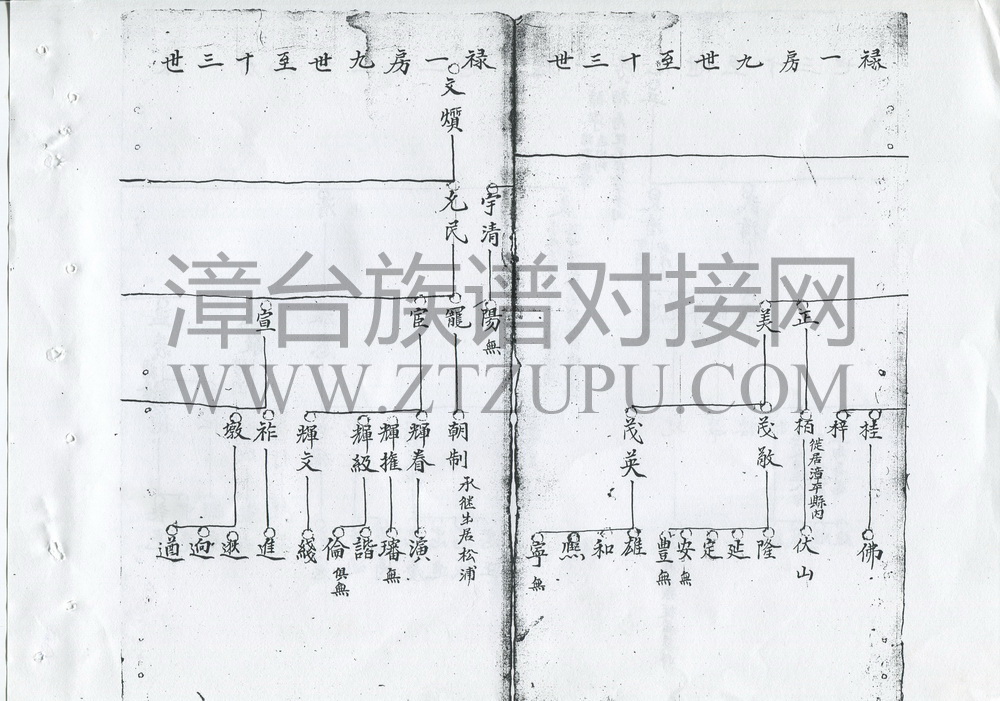 禄一房九世至十三世
正
美
桂
梓
栢
徙居漳平縣内
茂敬
茂英
佛
伏山
隆
延
定
安無
豊無
雄
和
熈
寧無
禄一房九世至十三世
文
宇清
民
陽無
寵
官
宣
朝制
承継出居松浦
輝春
輝推
輝級
輝文
祚
墩
演
璠無
諧
倫
俱無
綫
進
逖
逈
遒
漳台族谱对接网
WWW.ZTZUPU.COM